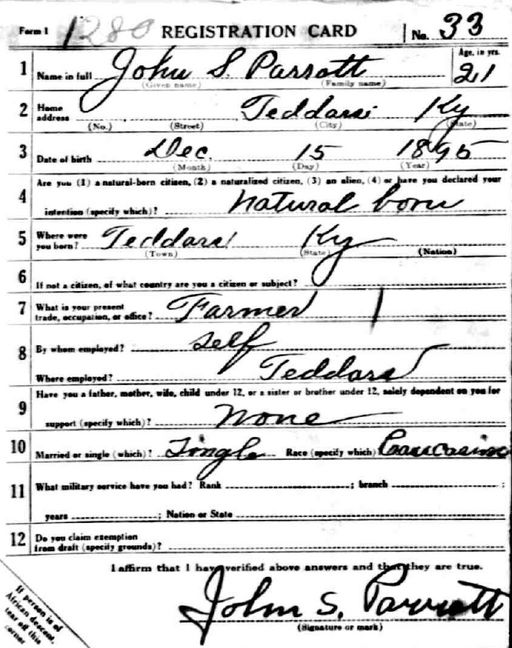 Form 1 1280 REGISTRATION CARD No. 33
1 Name in full John S. Parrott Age, in yrs. 21
(Given name) (Family name)
2 Home address Teddars Ky
(No.) (Street) (City) (State)
3 Date of birth Dec. 15 1895
(Month) (Day) (Year)
4 Are you (1) a natural-born citizen, (2) a naturalized citizen, (3) an alien, (4) or have you declared your
intention (specify which)? natural born
5 Where were you born? Teddars Ky
(Town) (State) (Nation)
6 If not a citizen, of what country are you a citizen or subject?
7 What is your present trade, occupation, or office? Farmer
8 By whom employed? Self
Where employed? Teddars
9 Have you a father, mother, wife, child under 12, or a sister or brother under 12, solely dependent on you for
support (specify which)? None
10 Married or single (which)? Single Race (specify which) Caucasian
11 What military service have you had? Rank ; branch ;
years ; Nation or State
12 Do you claim exemption from draft (specify grounds)?
I affirm that I have verified above answers and that they are true.
John S. Parrott
(Signature or mark)
If person is of
African descent,
tear off this
corner